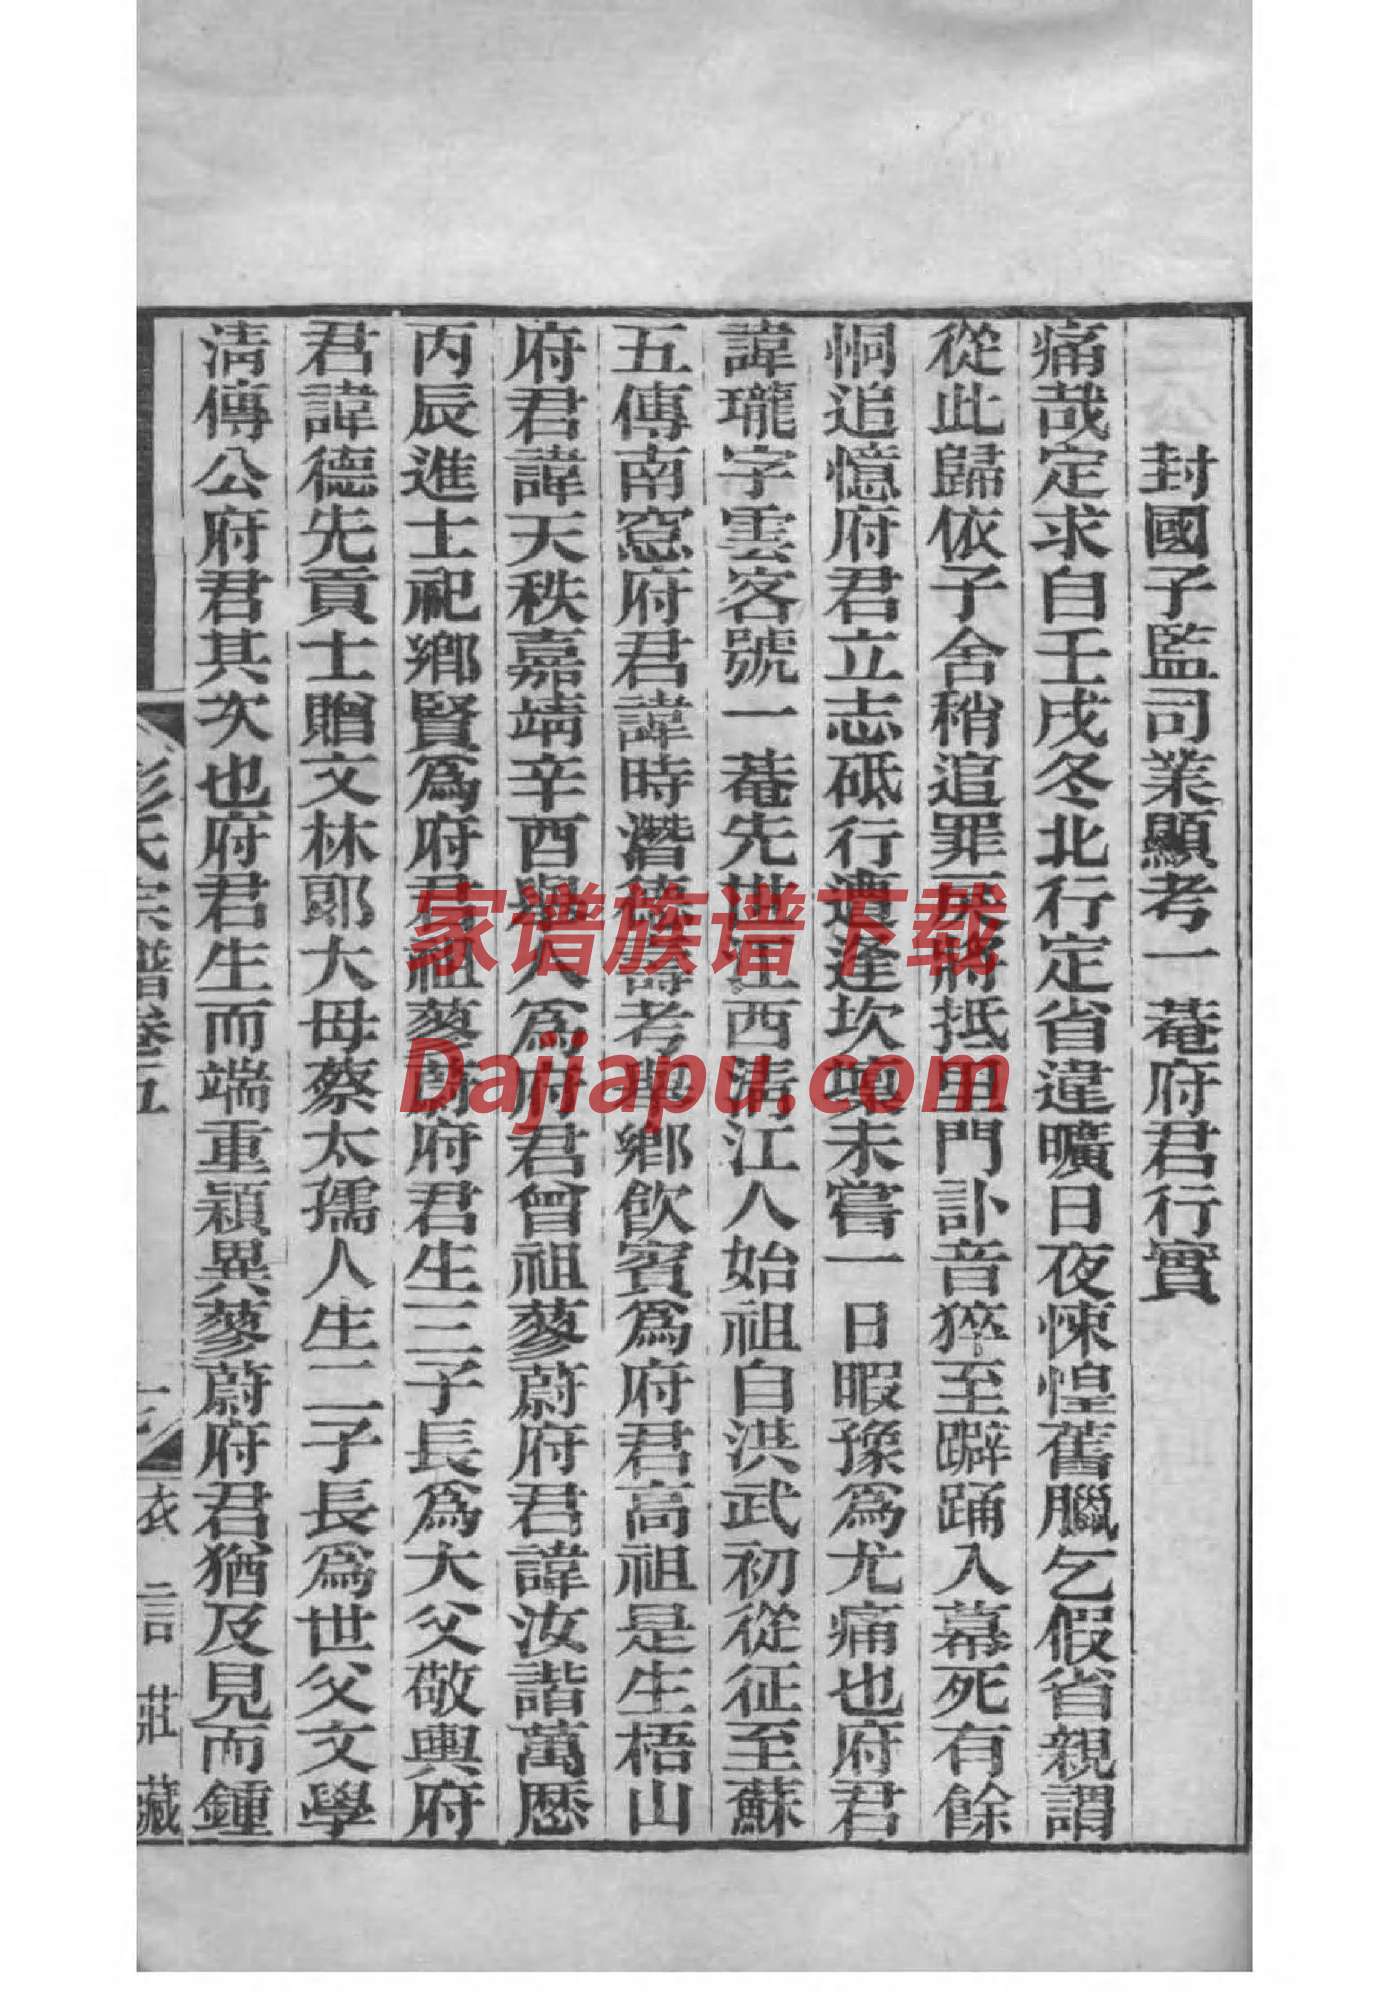 封國子監司業顯考一菴府君行實
痛哉定求自壬戌冬北行定省違曠日夜悚惶舊臘乞假省親謂
從此歸依子舍稍逭罪戾將抵里門訃音猝至躃踊入幕死有餘
恫追憶府君立志砥行遭逢坎壈未嘗一日暇豫爲尤痛也府君
諱瓏字雲客號一菴先世江西清江人始祖自洪武初從征至蘇
五傳南窓府君諱時潛德壽考舉鄉飲賓爲府君高祖是生梧山
府君諱天秩嘉靖辛酉舉人爲府君曾祖蓼蔚府君諱汝諧萬歷
丙辰進士祀鄉賢爲府君祖蓼蔚府君生三子長爲大父敬輿府
君諱德先貢士贈文林郎大母蔡太孺人生二子長爲世父文學
清傳公府君其次也府君生而端重穎異蓼蔚府君猶及見而鍾
彭氏宗譜卷五
衣言莊藏
家谱族谱下载
Dajiapu.com